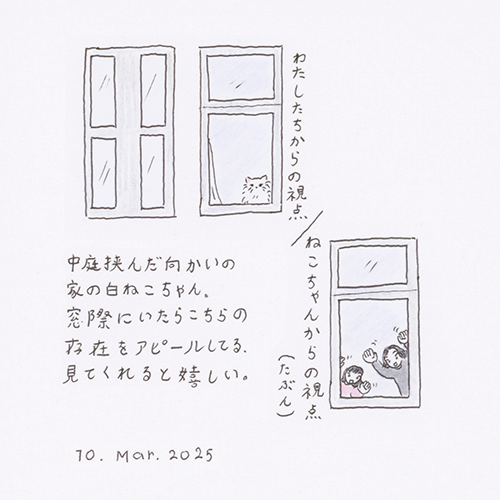 わたしたちからの視点
／
ねこちゃんからの視点
(たぶん)
中庭挟んだ向かいの
家の白ねこちゃん。
窓際にいたらこちらの
存在をアピールしてる、
見てくれると嬉しい。
10. Mar. 2025